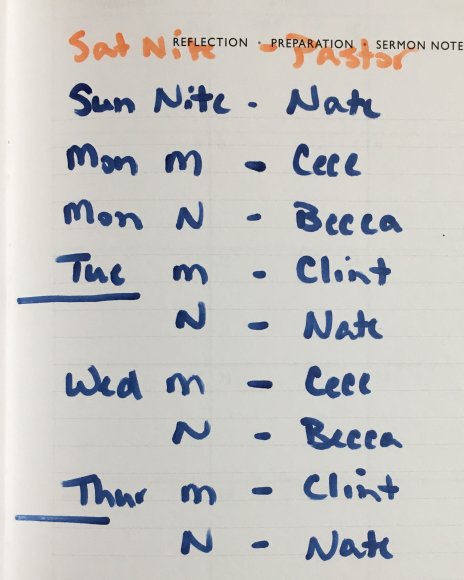 REFLECTION · PREPARATION · SERMON NOTE
Sat Nite - Pastor
Sun Nite - Nate
Mon m - Cece
Mon N - Becca
Tue m - Clint
N - Nate
Wed m - Cece
N - Becca
Thur m - Clint
N - Nate